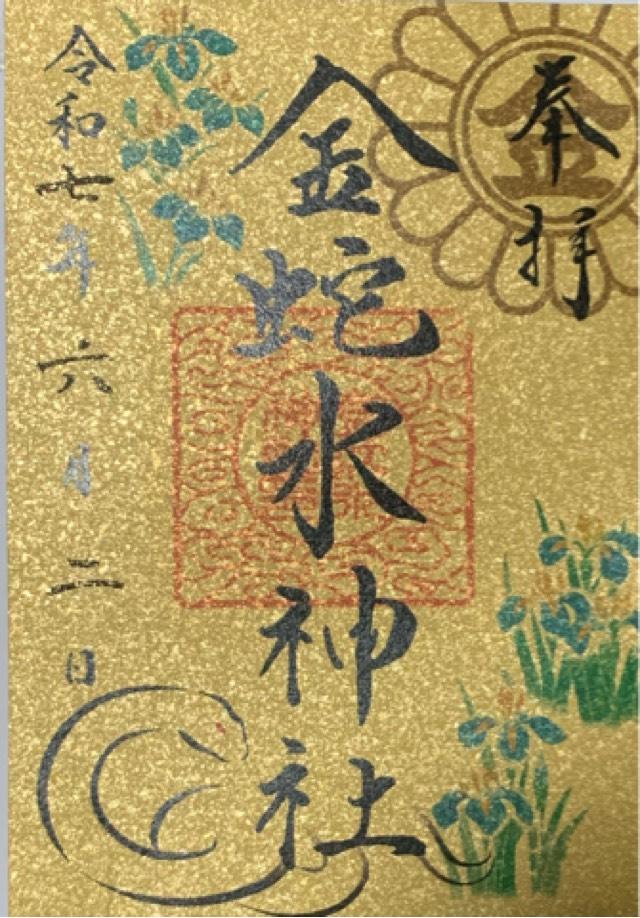 奉拝
金
金蛇水神社
令和七年六月二日